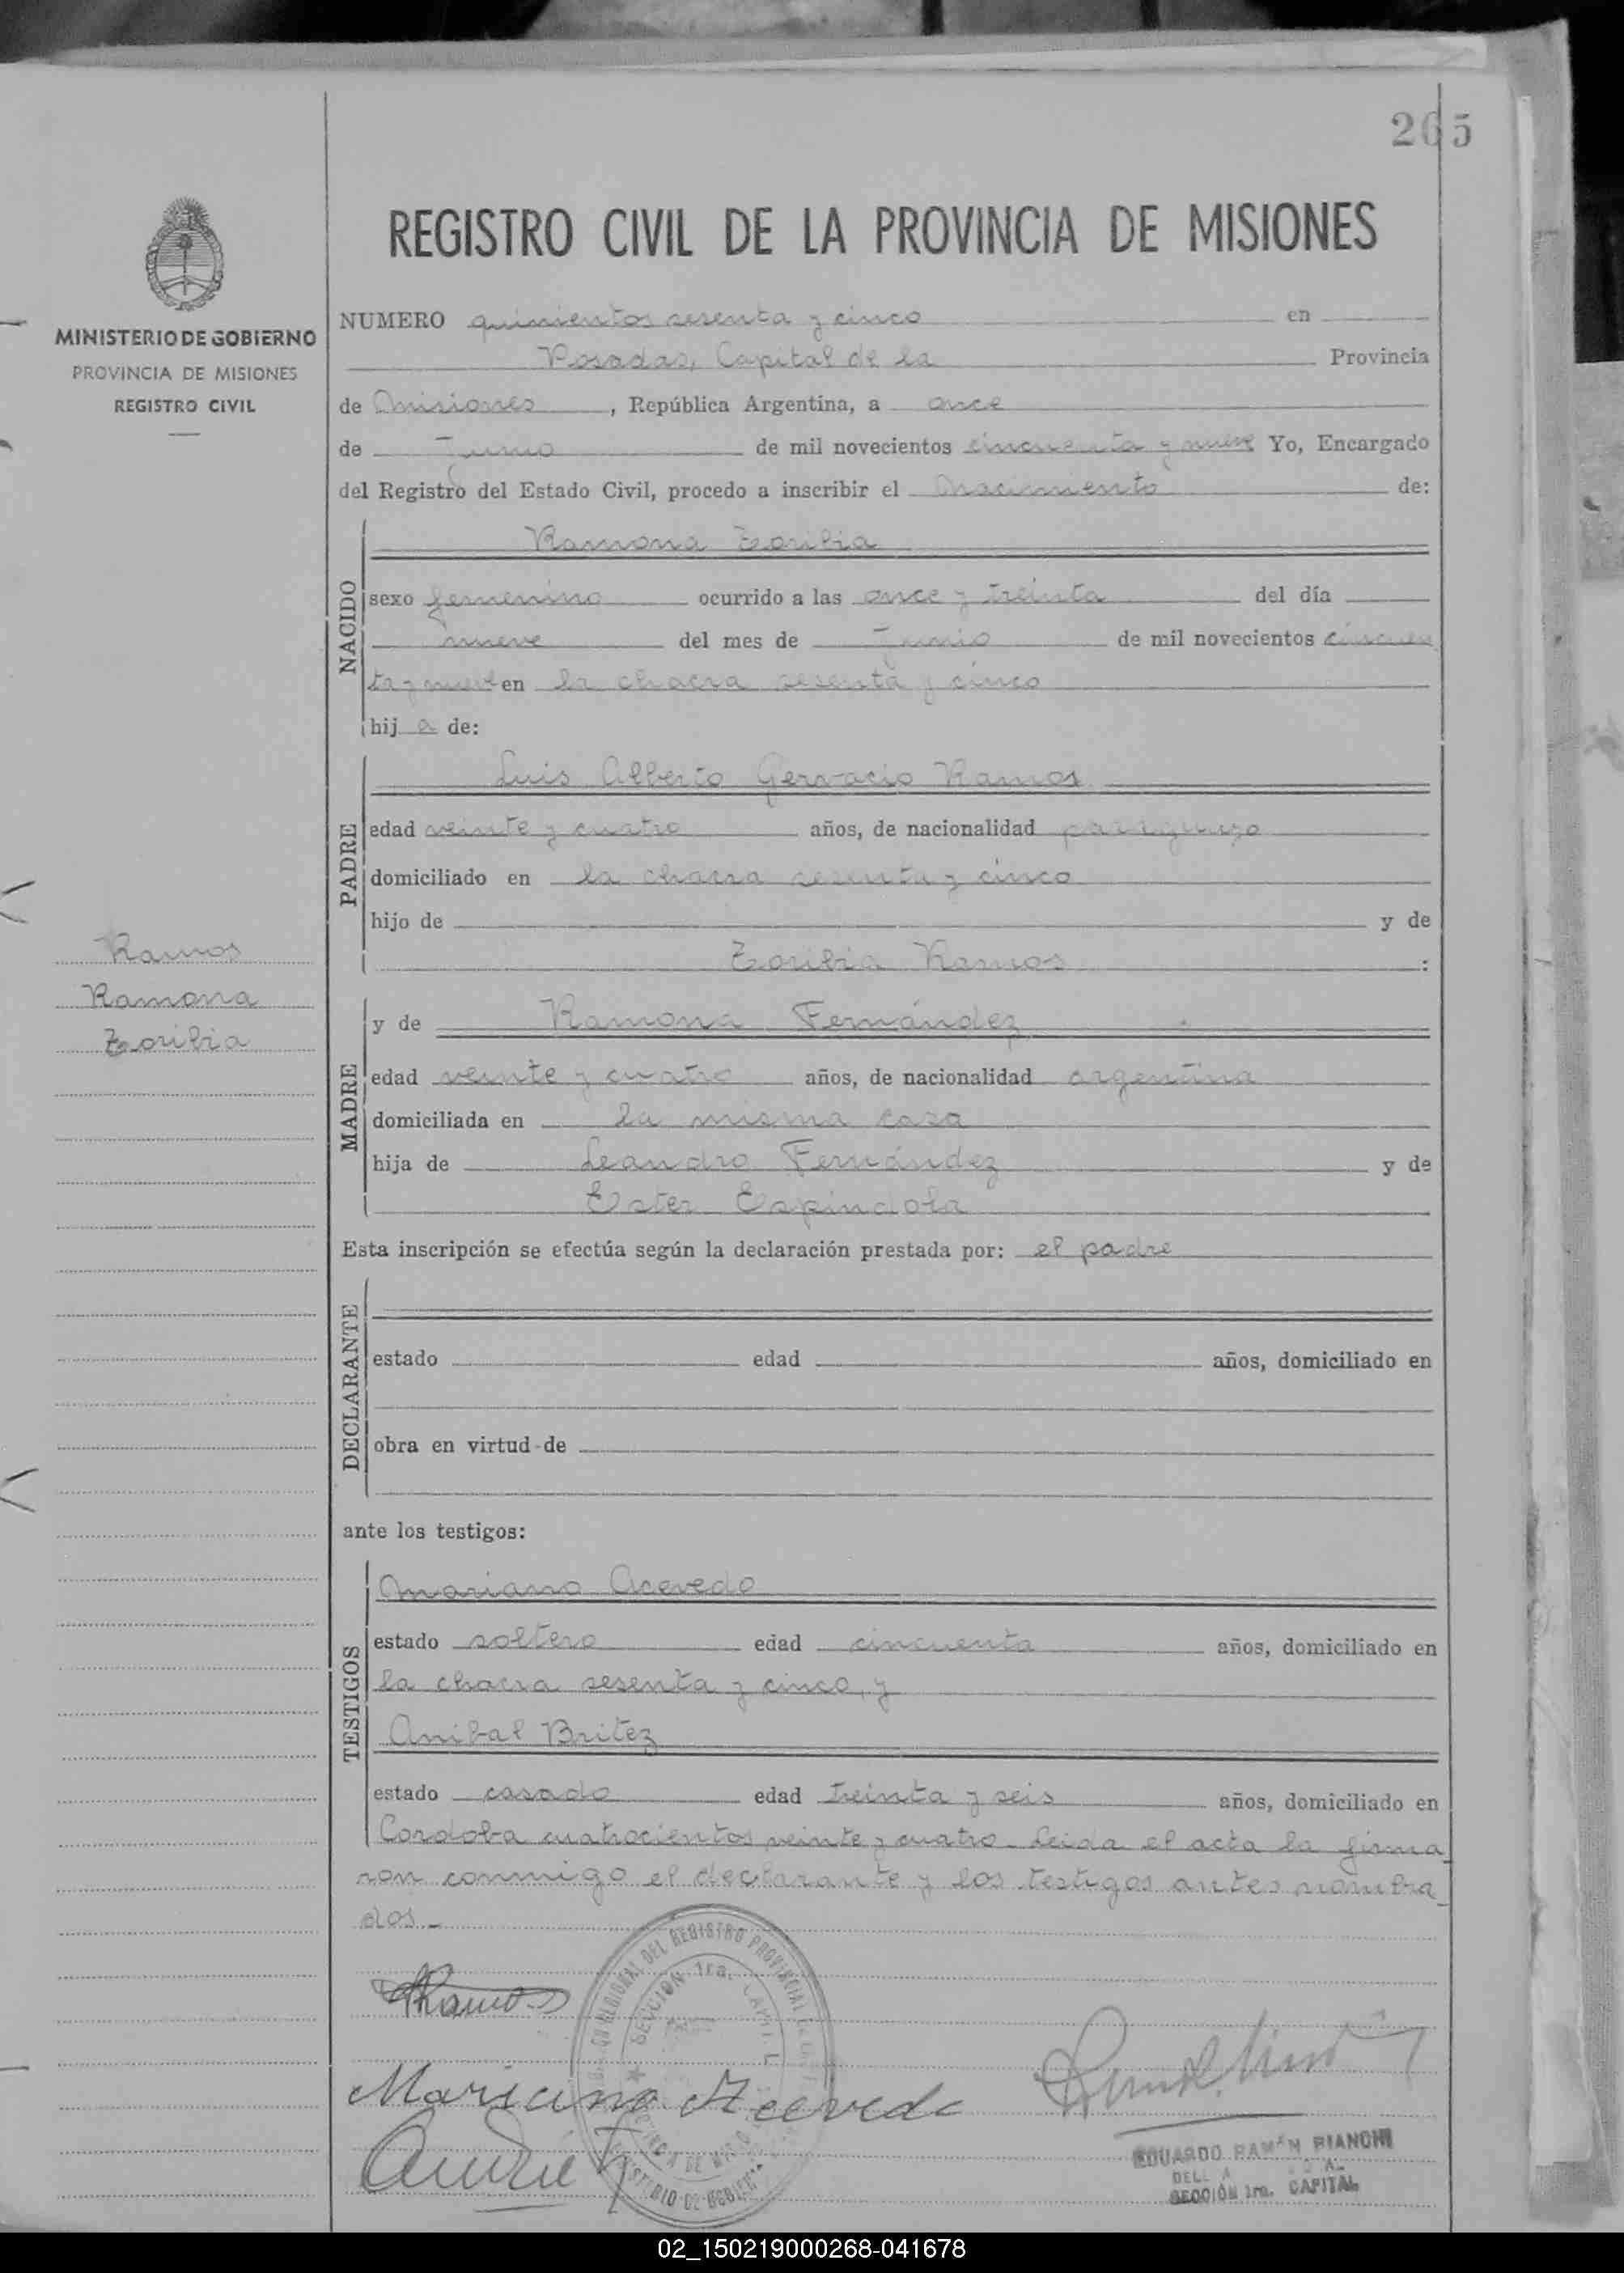 265
REGISTRO CIVIL DE LA PROVINCIA DE MISIONES
MINISTERIO DE GOBIERNO
PROVINCIA DE MISIONES
REGISTRO CIVIL
NUMERO quinientos sesenta y cinco en
Posadas, Capital de la Provincia
de Misiones, República Argentina, a once
de Junio de mil novecientos cincuenta y nueve Yo, Encargado
del Registro del Estado Civil, procedo a inscribir el Nacimiento de:
NACIDO
Ramona Toribia
sexo femenino ocurrido a las once y treinta del día
nueve del mes de Junio de mil novecientos cincuen
ta y nueve en la chacra sesenta y cinco
hij a de:
PADRE
Luis Alberto Gervacio Ramos
edad veinte y cuatro años, de nacionalidad paraguayo
domiciliado en la chacra sesenta y cinco
hijo de y de
Toribia Ramos :
Ramos
Ramona
Toribia
MADRE
y de Ramona Fernández
edad veinte y cuatro años, de nacionalidad argentina
domiciliada en la misma casa
hija de Leandro Fernández y de
Ester Espíndola
Esta inscripción se efectúa según la declaración prestada por: el padre
DECLARANTE
estado edad años, domiciliado en
obra en virtud de
ante los testigos:
TESTIGOS
Mariano Acevedo
estado soltero edad cincuenta años, domiciliado en
la chacra sesenta y cinco, y
Anibal Britez
estado casado edad treinta y seis años, domiciliado en
Cordoba cuatrocientos veinte y cuatro. Leida el acta la firma
ron conmigo el declarante y los testigos antes nombra
dos.-
REGIONAL DEL REGISTRO PROVINCIAL
SECCION 1ra. CAPITAL
MINISTERIO DE GOBIERNO
Ramos
Mariano Acevedo
EDUARDO RAMÓN BIANCHI
SECCIÓN 1ra. CAPITAL
02_150219000268-041678